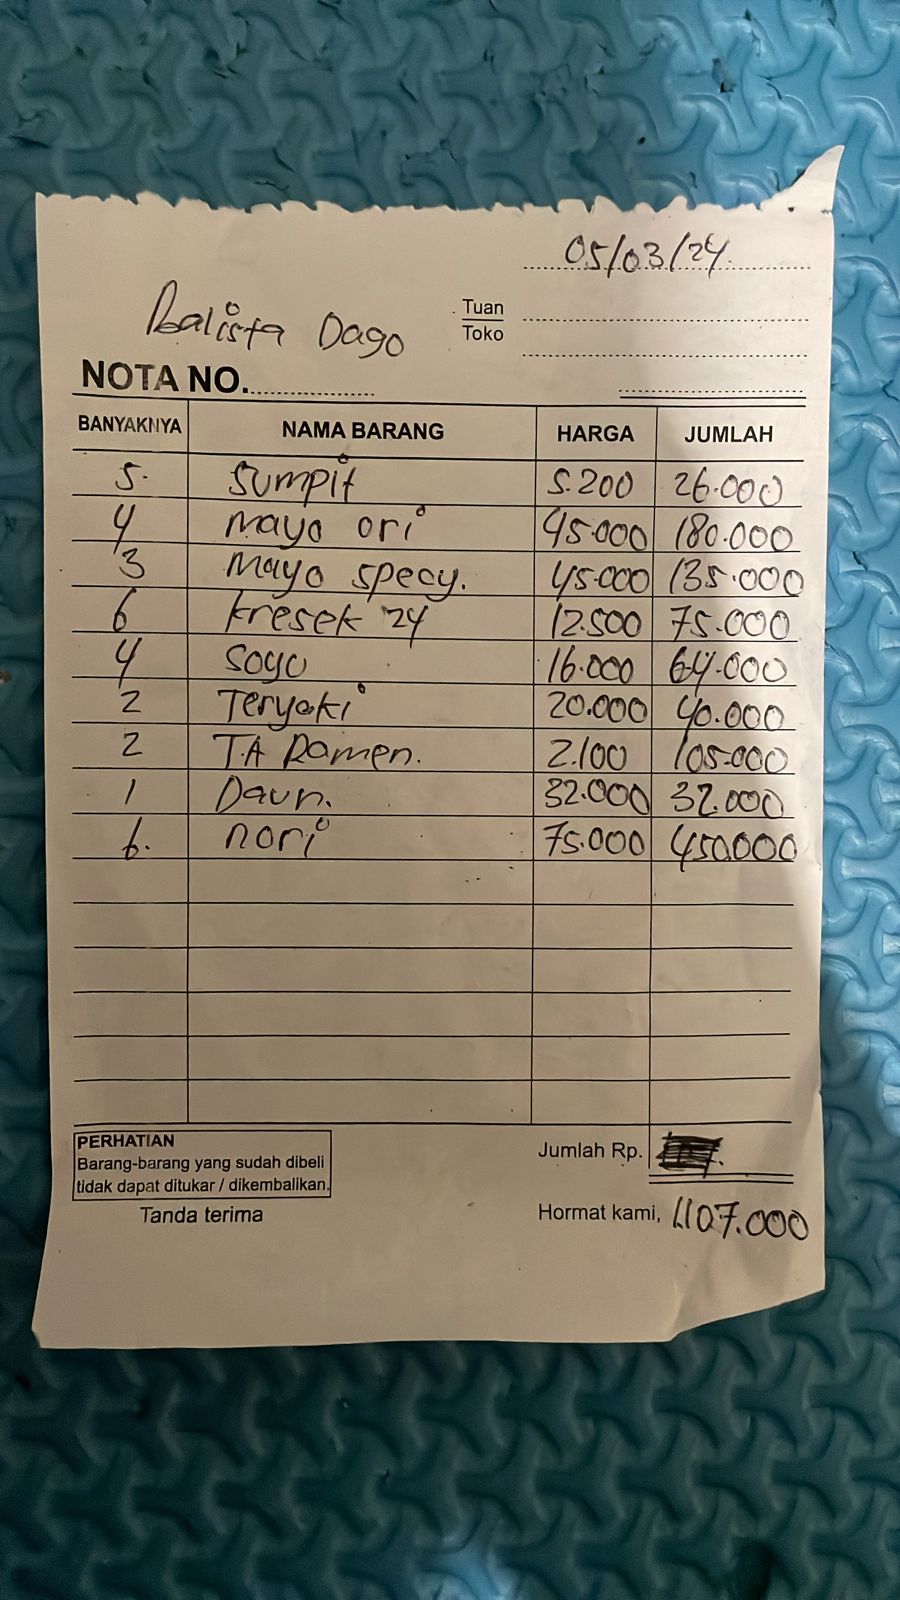 05/03/24
Balista Dago
Tuan
Toko
NOTA NO.
BANYAKNYA NAMA BARANG HARGA JUMLAH
5. Sumpit 5.200 26.000
4 mayo ori 45.000 180.000
3 mayo specy. 45.000 135.000
6 kresek 24 12.500 75.000
4 soyo 16.000 64.000
2 Teryaki 20.000 40.000
2 T.A Ramen. 2.100 105.000
1 Daun. 32.000 32.000
6. nori 75.000 450.000
PERHATIAN
Barang-barang yang sudah dibeli
tidak dapat ditukar / dikembalikan.
Jumlah Rp.
Tanda terima
Hormat kami, 1.107.000